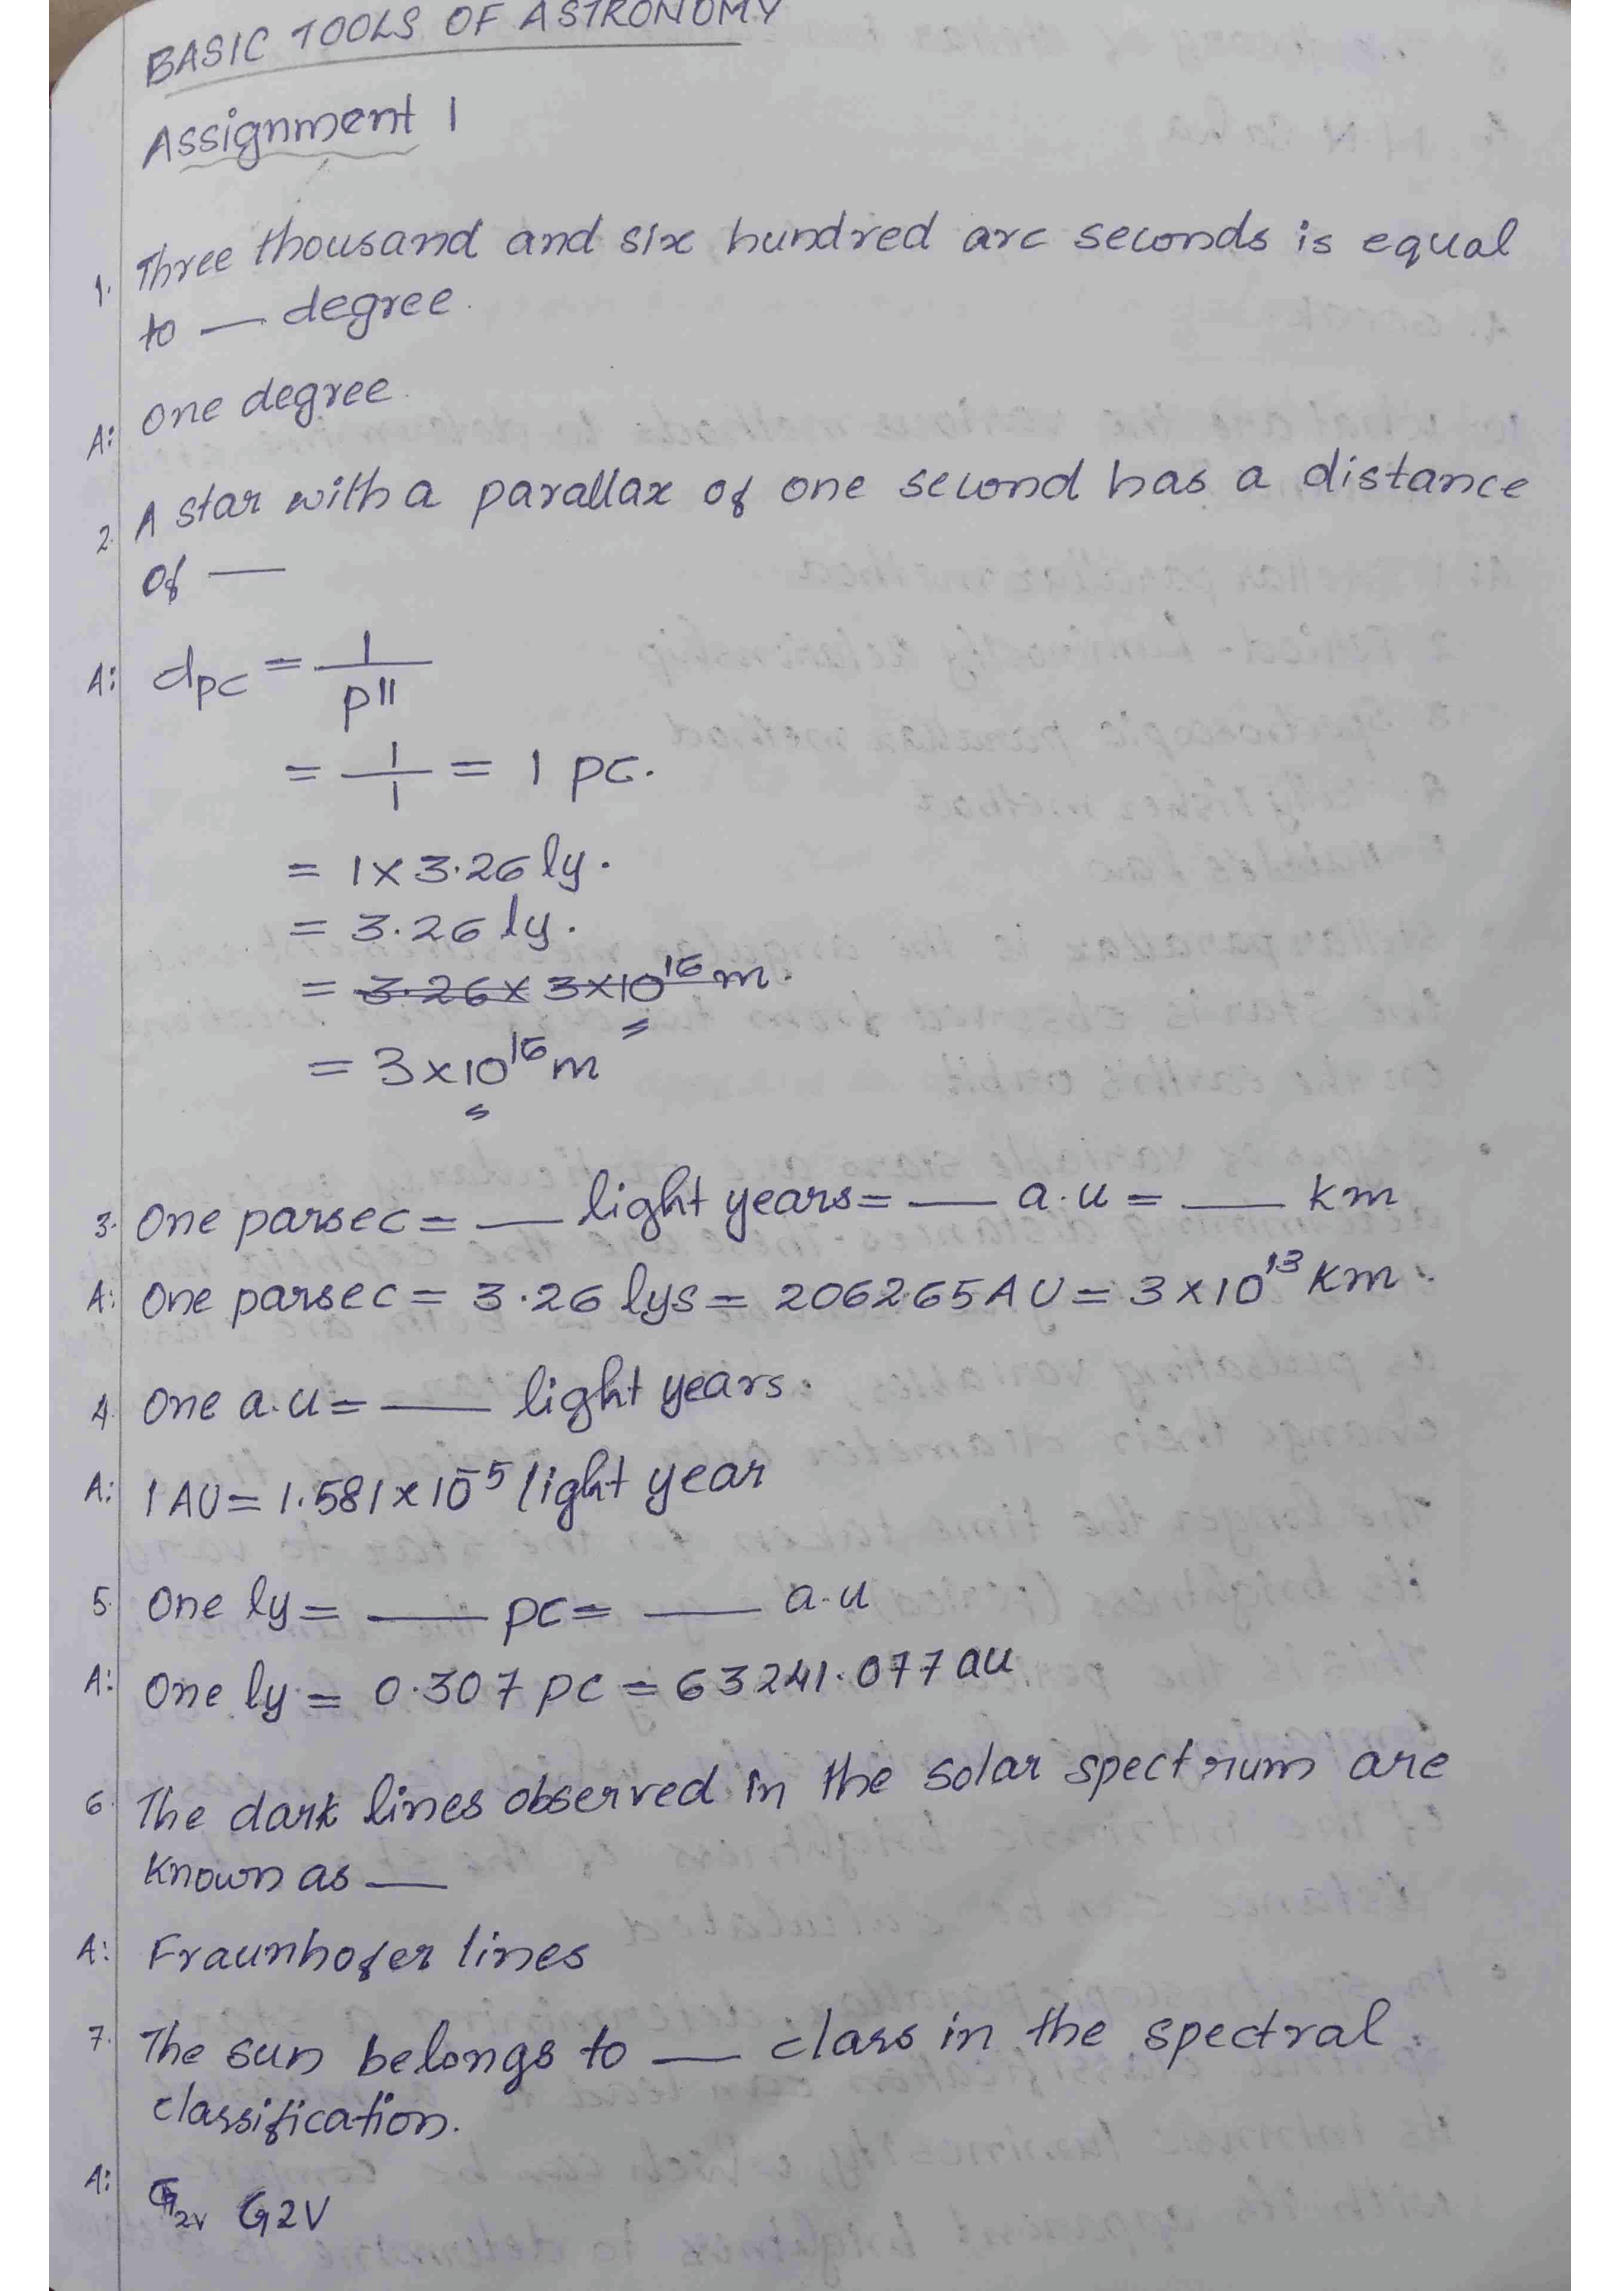 BASIC TOOLS OF ASTRONOMY
Assignment 1
1. Three thousand and six hundred arc seconds is equal
to — degree.
A: One degree.
2. A star with a parallax of one second has a distance
of —
A: dpc = 1/p"
= 1/1 = 1 pc.
= 1 x 3.26 ly.
= 3.26 ly.
= 3.26 x 3x10^16 m.
= 3x10^16 m
3. One parsec = — light years = — a.u = — km
A: One parsec = 3.26 lys = 206265 AU = 3x10^13 km.
4. One a.u = — light years.
A: 1 AU = 1.581x10^-5 light year
5. One ly = — pc = — a.u
A: One ly = 0.307 pc = 63241.077 au
6. The dark lines observed in the solar spectrum are
known as —
A: Fraunhofer lines
7. The sun belongs to — class in the spectral
classification.
A: G2V G2V